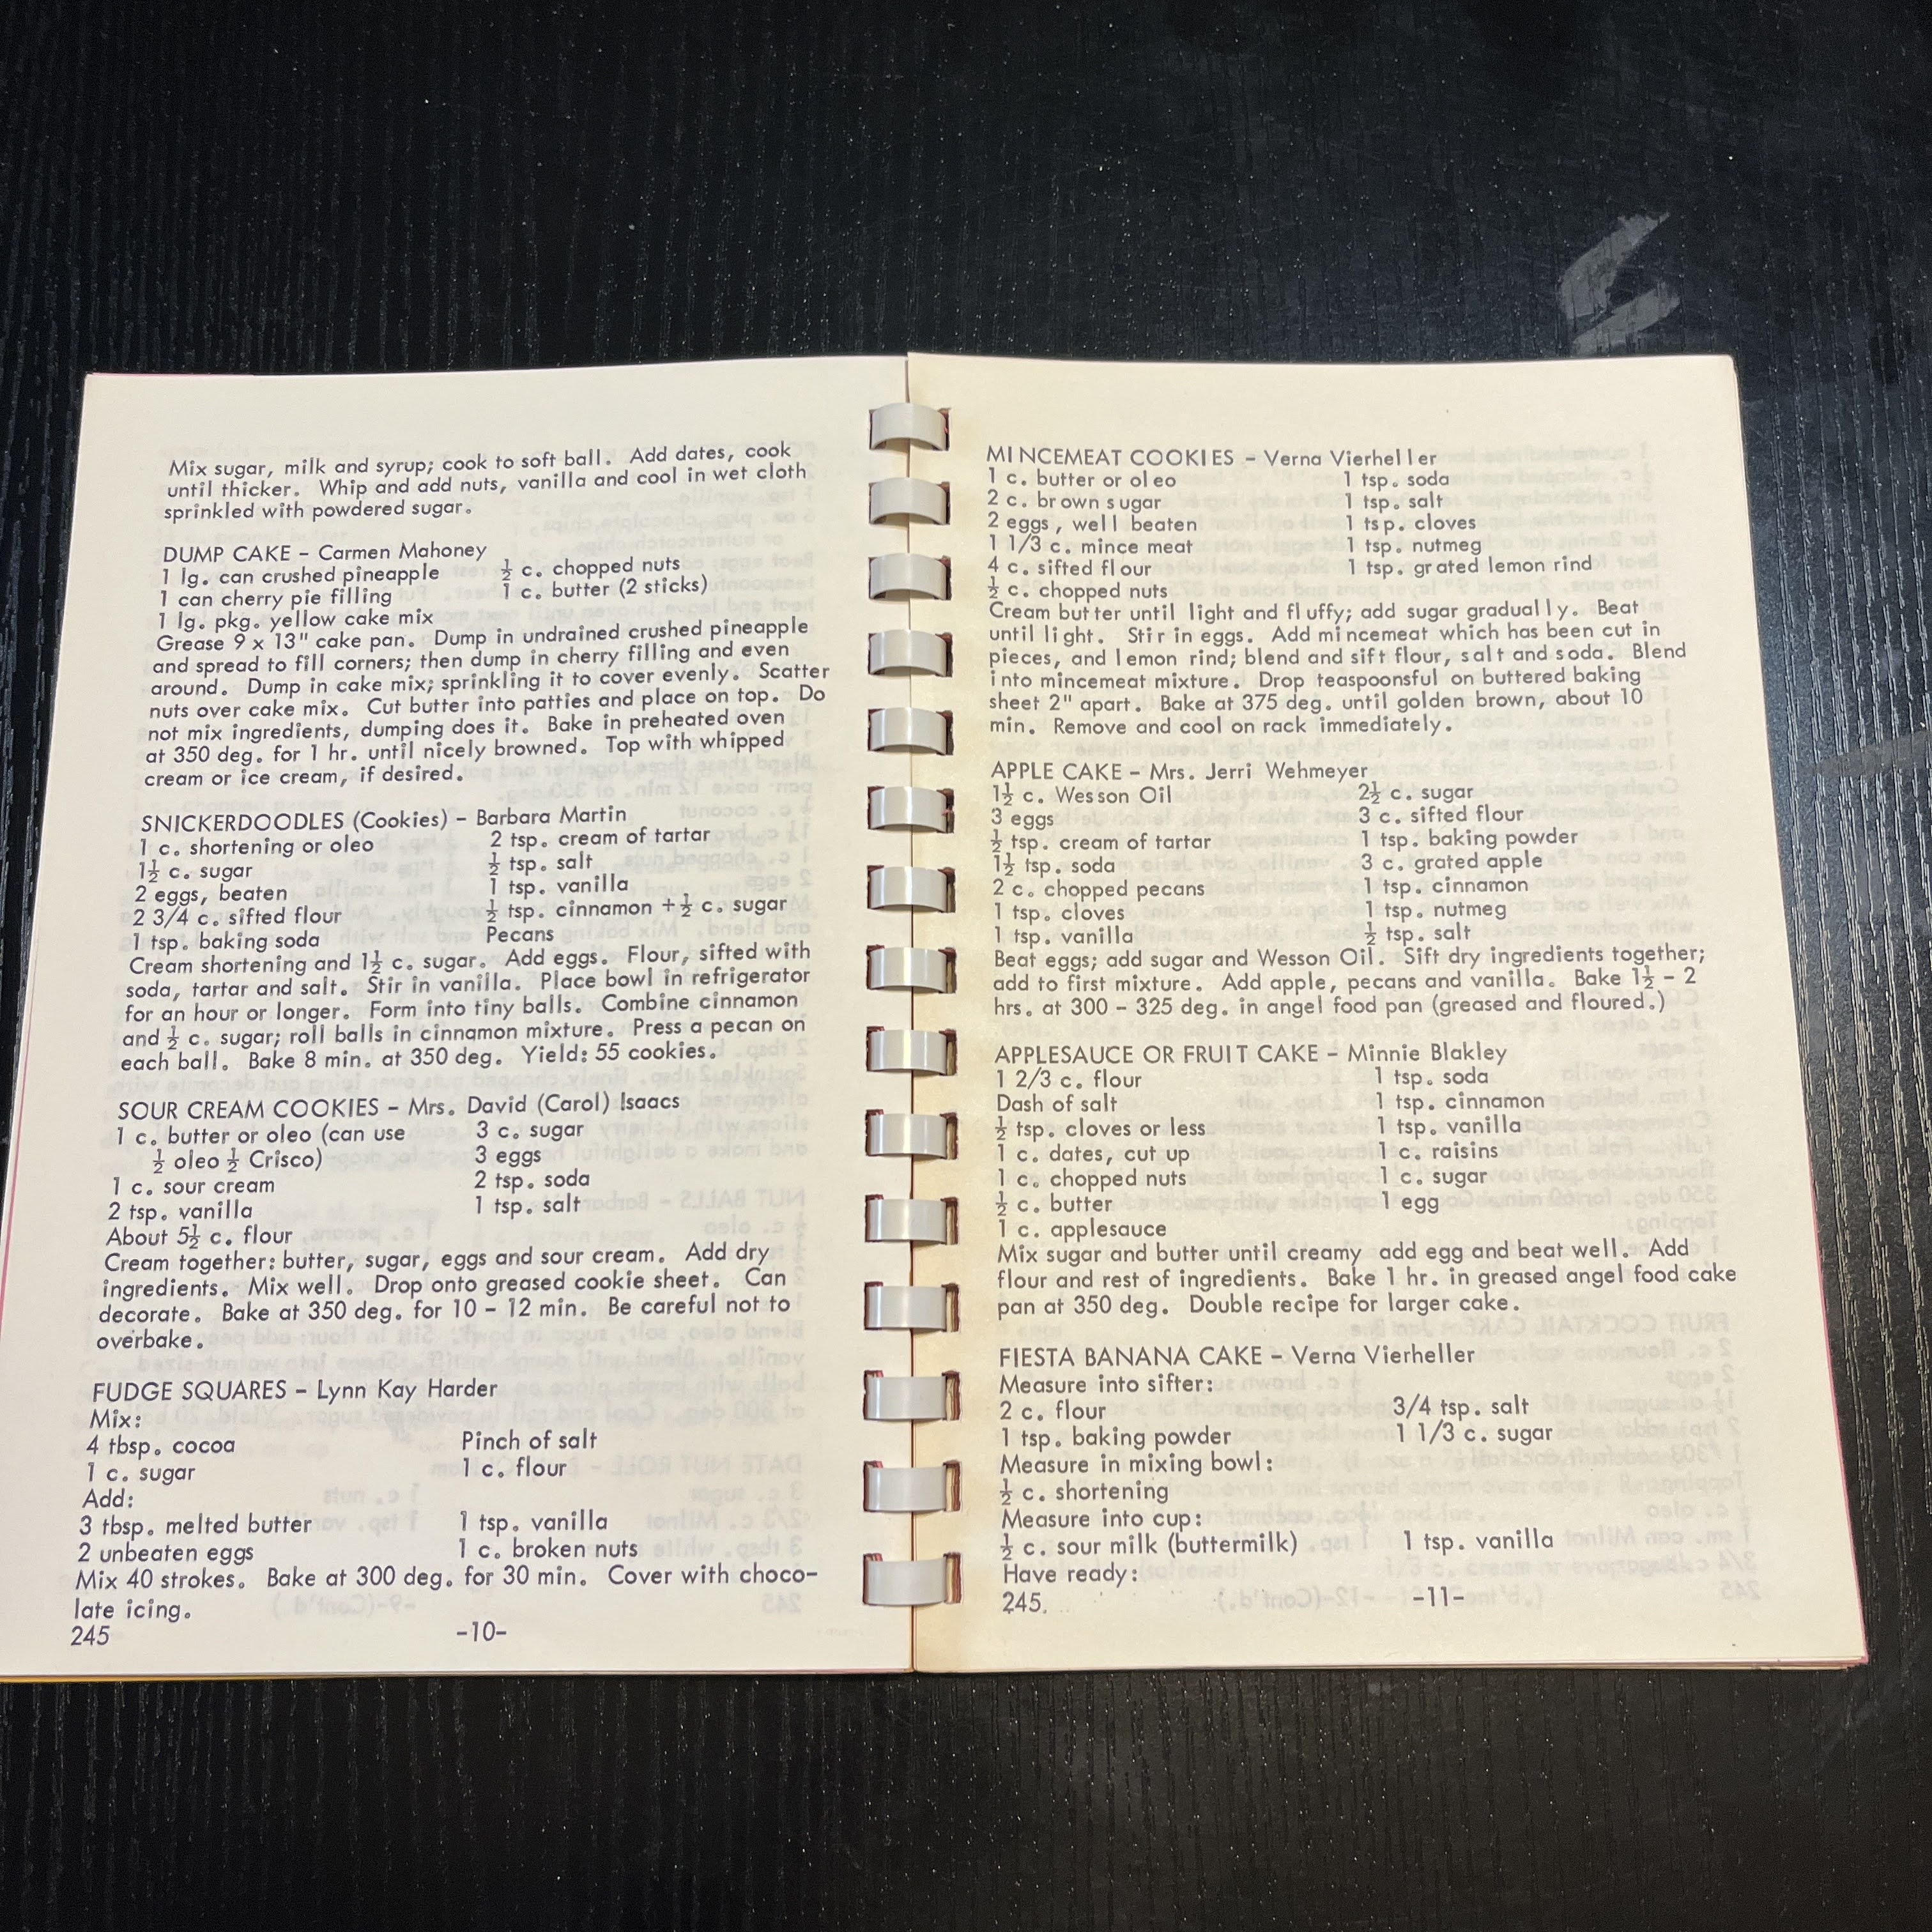 Mix sugar, milk and syrup; cook to soft ball. Add dates, cook
until thicker. Whip and add nuts, vanilla and cool in wet cloth
sprinkled with powdered sugar.
DUMP CAKE - Carmen Mahoney
1 lg. can crushed pineapple ½ c. chopped nuts
1 can cherry pie filling 1 c. butter (2 sticks)
1 lg. pkg. yellow cake mix
Grease 9 x 13" cake pan. Dump in undrained crushed pineapple
and spread to fill corners; then dump in cherry filling and even
around. Dump in cake mix; sprinkling it to cover evenly. Scatter
nuts over cake mix. Cut butter into patties and place on top. Do
not mix ingredients, dumping does it. Bake in preheated oven
at 350 deg. for 1 hr. until nicely browned. Top with whipped
cream or ice cream, if desired.
SNICKERDOODLES (Cookies) - Barbara Martin
1 c. shortening or oleo 2 tsp. cream of tartar
1½ c. sugar ½ tsp. salt
2 eggs, beaten 1 tsp. vanilla
2 3/4 c. sifted flour ½ tsp. cinnamon +½ c. sugar
1 tsp. baking soda Pecans
Cream shortening and 1½ c. sugar. Add eggs. Flour, sifted with
soda, tartar and salt. Stir in vanilla. Place bowl in refrigerator
for an hour or longer. Form into tiny balls. Combine cinnamon
and ½ c. sugar; roll balls in cinnamon mixture. Press a pecan on
each ball. Bake 8 min. at 350 deg. Yield: 55 cookies.
SOUR CREAM COOKIES - Mrs. David (Carol) Isaacs
1 c. butter or oleo (can use 3 c. sugar
½ oleo ½ Crisco) 3 eggs
1 c. sour cream 2 tsp. soda
2 tsp. vanilla 1 tsp. salt
About 5½ c. flour
Cream together: butter, sugar, eggs and sour cream. Add dry
ingredients. Mix well. Drop onto greased cookie sheet. Can
decorate. Bake at 350 deg. for 10 - 12 min. Be careful not to
overbake.
FUDGE SQUARES - Lynn Kay Harder
Mix:
4 tbsp. cocoa Pinch of salt
1 c. sugar 1 c. flour
Add:
3 tbsp. melted butter 1 tsp. vanilla
2 unbeaten eggs 1 c. broken nuts
Mix 40 strokes. Bake at 300 deg. for 30 min. Cover with choco-
late icing.
245 -10-
MINCEMEAT COOKIES - Verna Vierheller
1 c. butter or oleo 1 tsp. soda
2 c. brown sugar 1 tsp. salt
2 eggs, well beaten 1 tsp. cloves
1 1/3 c. mince meat 1 tsp. nutmeg
4 c. sifted flour 1 tsp. grated lemon rind
½ c. chopped nuts
Cream butter until light and fluffy; add sugar gradually. Beat
until light. Stir in eggs. Add mincemeat which has been cut in
pieces, and lemon rind; blend and sift flour, salt and soda. Blend
into mincemeat mixture. Drop teaspoonsful on buttered baking
sheet 2" apart. Bake at 375 deg. until golden brown, about 10
min. Remove and cool on rack immediately.
APPLE CAKE - Mrs. Jerri Wehmeyer
1½ c. Wesson Oil 2½ c. sugar
3 eggs 3 c. sifted flour
½ tsp. cream of tartar 1 tsp. baking powder
1½ tsp. soda 3 c. grated apple
2 c. chopped pecans 1 tsp. cinnamon
1 tsp. cloves 1 tsp. nutmeg
1 tsp. vanilla ½ tsp. salt
Beat eggs; add sugar and Wesson Oil. Sift dry ingredients together;
add to first mixture. Add apple, pecans and vanilla. Bake 1½ - 2
hrs. at 300 - 325 deg. in angel food pan (greased and floured.)
APPLESAUCE OR FRUIT CAKE - Minnie Blakley
1 2/3 c. flour 1 tsp. soda
Dash of salt 1 tsp. cinnamon
½ tsp. cloves or less 1 tsp. vanilla
1 c. dates, cut up 1 c. raisins
1 c. chopped nuts 1 c. sugar
½ c. butter 1 egg
1 c. applesauce
Mix sugar and butter until creamy add egg and beat well. Add
flour and rest of ingredients. Bake 1 hr. in greased angel food cake
pan at 350 deg. Double recipe for larger cake.
FIESTA BANANA CAKE - Verna Vierheller
Measure into sifter:
2 c. flour 3/4 tsp. salt
1 tsp. baking powder 1 1/3 c. sugar
Measure in mixing bowl:
½ c. shortening
Measure into cup:
½ c. sour milk (buttermilk) 1 tsp. vanilla
Have ready:
245. -11-